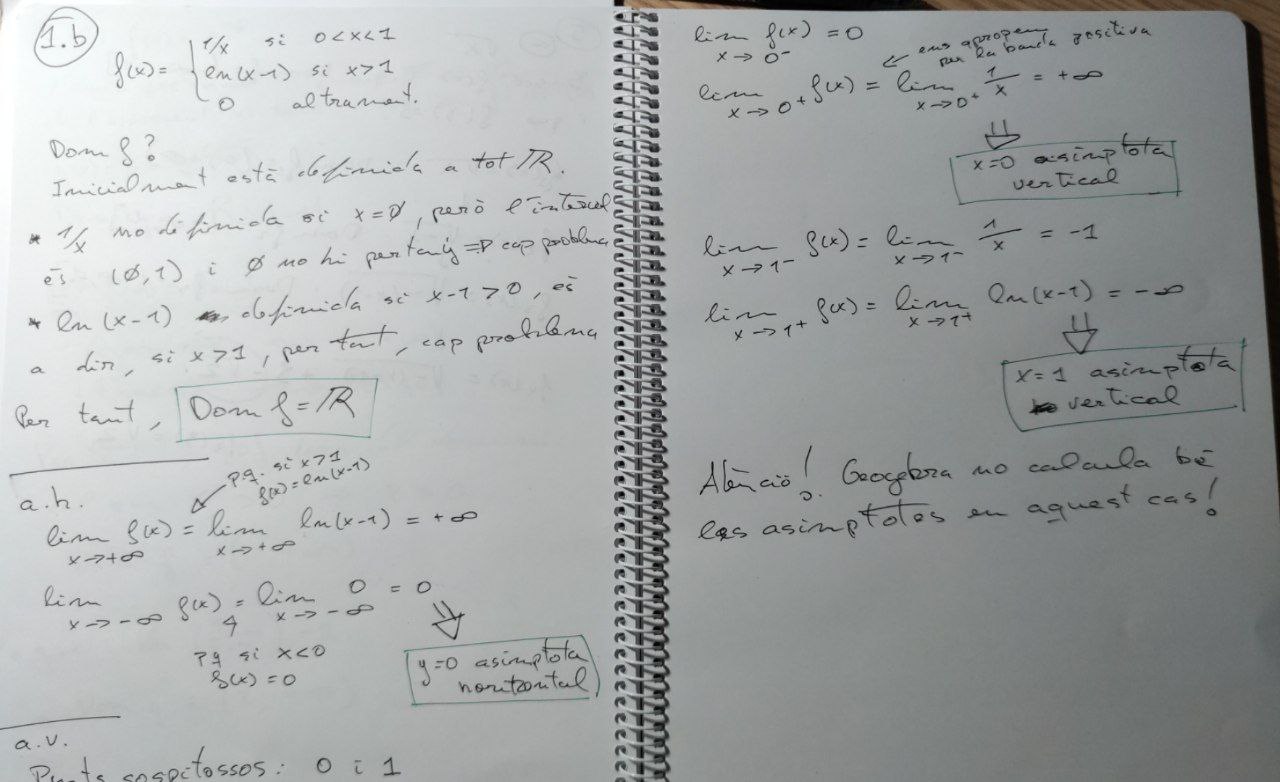 1.b
f(x) = { 1/x si 0<x<1
ln(x-1) si x>1
0 altrament.
Dom f?
Inicialment està definida a tot ℝ.
* 1/x no definida si x=0, però l'interval
és (0,1) i 0 no hi pertany ⇒ cap problema
* ln(x-1) definida si x-1>0, és
a dir, si x>1, per tant, cap problema
Per tant, Dom f = ℝ
a.h.
p.q. si x>1
f(x)=ln(x-1)
lim x→+∞ f(x) = lim x→+∞ ln(x-1) = +∞
lim x→-∞ f(x) = lim x→-∞ 0 = 0
pq si x<0
f(x)=0
y=0 asimptota
horitzontal
a.v.
Punts sospitossos: 0 i 1
lim x→0⁻ f(x) = 0
ens apropem
per la banda positiva
lim x→0⁺ f(x) = lim x→0⁺ 1/x = +∞
x=0 asimptota
vertical
lim x→1⁻ f(x) = lim x→1⁻ 1/x = -1
lim x→1⁺ f(x) = lim x→1⁺ ln(x-1) = -∞
x=1 asimptota
vertical
Atenció! Geogebra no calcula bé
les asimptotes en aquest cas!